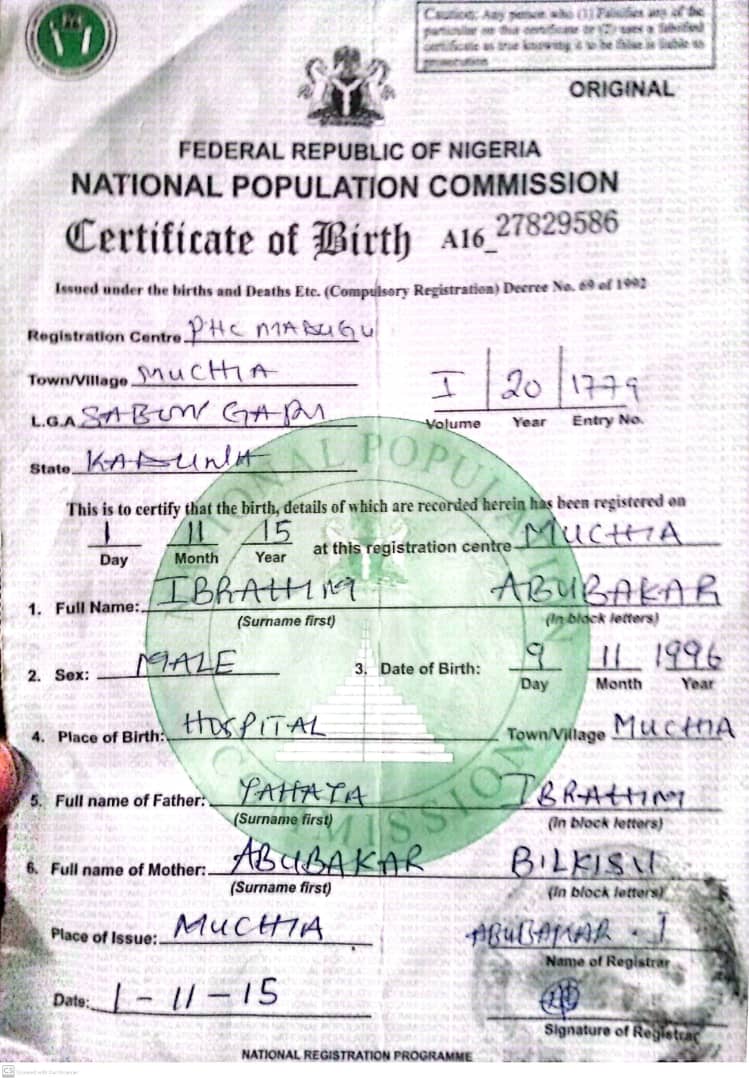 Caution: Any person who (1) Falsifies any of the
particular on this certificate or (2) uses a falsified
certificate as true knowing it to be false is liable to
prosecution
ORIGINAL
FEDERAL REPUBLIC OF NIGERIA
NATIONAL POPULATION COMMISSION
Certificate of Birth A16_27829586
Issued under the births and Deaths Etc. (Compulsory Registration) Decree No. 69 of 1992
Registration Centre PHC MABUGU
Town/Village MUCHIA
I 20 1779
Volume Year Entry No.
L.G.A SABON GARI
State KADUNA
This is to certify that the birth, details of which are recorded herein has been registered on
1 11 15 at this registration centre MUCHIA
Day Month Year
1. Full Name: IBRAHIM ABUBAKAR
(Surname first) (In block letters)
2. Sex: MALE 3. Date of Birth: 9 11 1996
Day Month Year
4. Place of Birth: HOSPITAL Town/Village MUCHIA
5. Full name of Father: YAHAYA IBRAHIM
(Surname first) (In block letters)
6. Full name of Mother: ABUBAKAR BILKISU
(Surname first) (In block letters)
Place of Issue: MUCHIA ABUBAKAR . I
Name of Registrar
Date: 1-11-15
Signature of Registrar
NATIONAL REGISTRATION PROGRAMME
NATIONAL POPULATION COMMISSION
CS Scanned with CamScanner